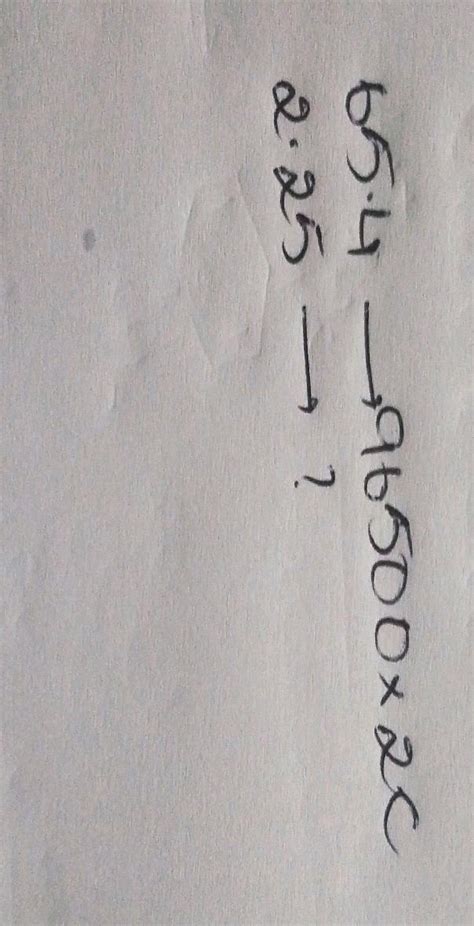 65.4 → 96500 × 2C
2.25 → ?